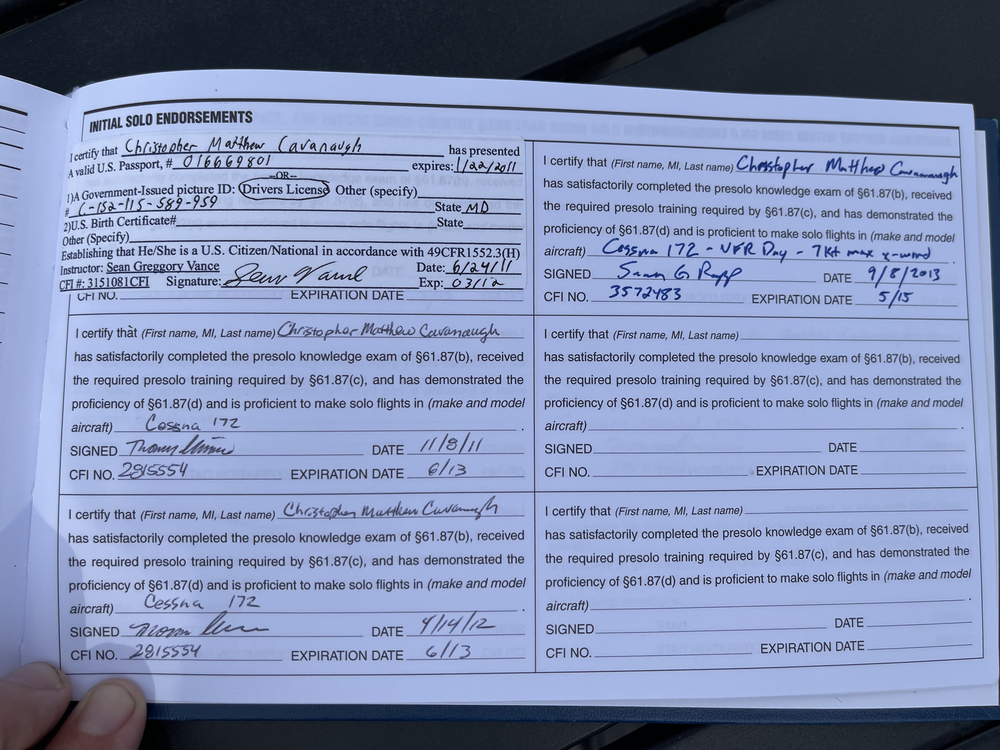 INITIAL SOLO ENDORSEMENTS
I certify that Christopher Matthew Cavanaugh has presented
A valid U.S. Passport, # 016669801 expires: 1/22/2011
-OR-
1)A Government-Issued picture ID: Drivers License Other (specify)
# C-152-115-589-959 State MD
2)U.S. Birth Certificate# State
Other (Specify)
Establishing that He/She is a U.S. Citizen/National in accordance with 49CFR1552.3(H)
Instructor: Sean Greggory Vance Date: 6/24/11
CFI #: 3151081CFI Signature: Sean Vance Exp: 03/12
CFI NO. EXPIRATION DATE
I certify that (First name, MI, Last name) Christopher Matthew Cavanaugh
has satisfactorily completed the presolo knowledge exam of §61.87(b), received
the required presolo training required by §61.87(c), and has demonstrated the
proficiency of §61.87(d) and is proficient to make solo flights in (make and model
aircraft) Cessna 172 .
SIGNED DATE 11/8/11
CFI NO. 2815554 EXPIRATION DATE 6/13
I certify that (First name, MI, Last name) Christopher Matthew Cavanaugh
has satisfactorily completed the presolo knowledge exam of §61.87(b), received
the required presolo training required by §61.87(c), and has demonstrated the
proficiency of §61.87(d) and is proficient to make solo flights in (make and model
aircraft) Cessna 172 .
SIGNED DATE 4/14/12
CFI NO. 2815554 EXPIRATION DATE 6/13
I certify that (First name, MI, Last name) Christopher Matthew Cavanaugh
has satisfactorily completed the presolo knowledge exam of §61.87(b), received
the required presolo training required by §61.87(c), and has demonstrated the
proficiency of §61.87(d) and is proficient to make solo flights in (make and model
aircraft) Cessna 172 - VFR Day - 7kt max x-wind
SIGNED DATE 9/8/2013
CFI NO. 3572483 EXPIRATION DATE 5/15
I certify that (First name, MI, Last name)
has satisfactorily completed the presolo knowledge exam of §61.87(b), received
the required presolo training required by §61.87(c), and has demonstrated the
proficiency of §61.87(d) and is proficient to make solo flights in (make and model
aircraft) .
SIGNED DATE
CFI NO. EXPIRATION DATE
I certify that (First name, MI, Last name)
has satisfactorily completed the presolo knowledge exam of §61.87(b), received
the required presolo training required by §61.87(c), and has demonstrated the
proficiency of §61.87(d) and is proficient to make solo flights in (make and model
aircraft) .
SIGNED DATE
CFI NO. EXPIRATION DATE